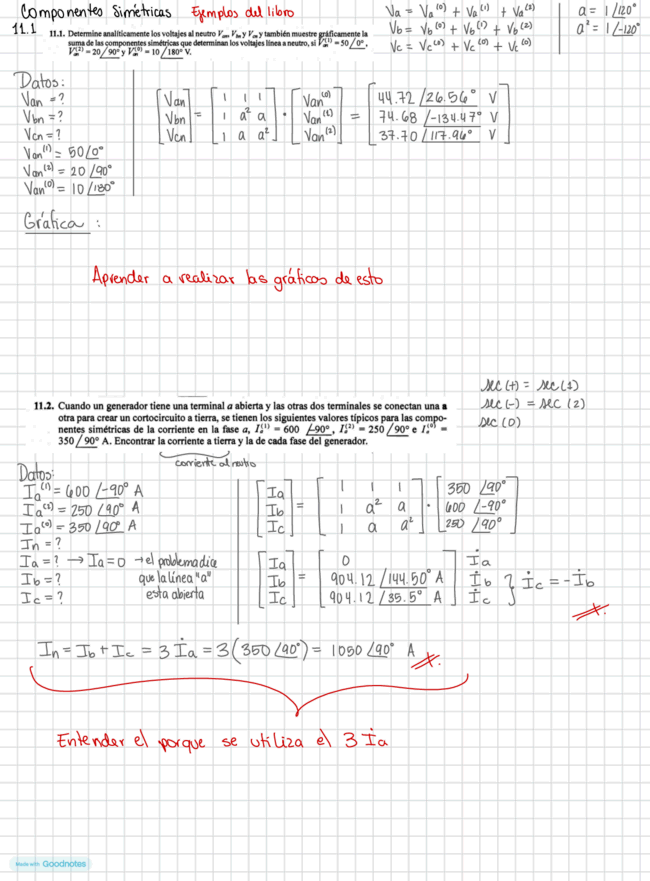 Componentes Simétricas Ejemplos del libro
Va = Va⁽⁰⁾ + Va⁽¹⁾ + Va⁽²⁾
Vb = Vb⁽⁰⁾ + Vb⁽¹⁾ + Vb⁽²⁾
Vc = Vc⁽⁰⁾ + Vc⁽⁰⁾ + Vc⁽⁰⁾
a = 1∠120°
a² = 1∠-120°
11.1
11.1. Determine analíticamente los voltajes al neutro Van, Vbn y Vcn y también muestre gráficamente la
suma de las componentes simétricas que determinan los voltajes línea a neutro, si Van⁽¹⁾ = 50∠0°,
Van⁽²⁾ = 20∠90° y Van⁽⁰⁾ = 10∠180° V.
Datos:
Van = ?
Vbn = ?
Vcn = ?
Van⁽¹⁾ = 50∠0°
Van⁽²⁾ = 20∠90°
Van⁽⁰⁾ = 10∠180°
[Van] = [1 1 1] · [Van⁽⁰⁾] = [44.72∠26.56° V]
[Vbn] [1 a² a] [Van⁽¹⁾] [74.68∠-134.47° V]
[Vcn] [1 a a²] [Van⁽²⁾] [37.70∠117.96° V]
Gráfica :
Aprender a realizar los gráficos de esto
11.2. Cuando un generador tiene una terminal a abierta y las otras dos terminales se conectan una a
otra para crear un cortocircuito a tierra, se tienen los siguientes valores típicos para las compo-
nentes simétricas de la corriente en la fase a, Ia⁽¹⁾ = 600∠-90°, Ia⁽²⁾ = 250∠90° e Ia⁽⁰⁾ =
350∠90° A. Encontrar la corriente a tierra y la de cada fase del generador.
sec (+) = sec (1)
sec (-) = sec (2)
sec (0)
corriente al neutro
Datos:
Ia⁽¹⁾ = 600∠-90° A
Ia⁽²⁾ = 250∠90° A
Ia⁽⁰⁾ = 350∠90° A
In = ?
Ia = ? → Ia = 0 → el problema dice
Ib = ? que la línea "a"
Ic = ? esta abierta
[Ia] = [1 1 1] · [350∠90°]
[Ib] [1 a² a] [600∠-90°]
[Ic] [1 a a²] [250∠90°]
[Ia] = [0] İa
[Ib] [904.12∠144.50° A] İb } İc = -İb
[Ic] [904.12∠35.5° A] İc
In = Ib + Ic = 3 İa = 3(350∠90°) = 1050∠90° A
Entender el porque se utiliza el 3 İa
Made with Goodnotes